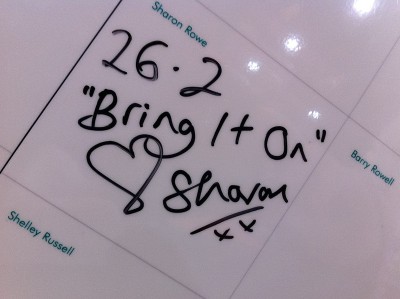 Sharon Rowe
26.2
"Bring It On"
Sharon
xx
Barry Rowell
Shelley Russell